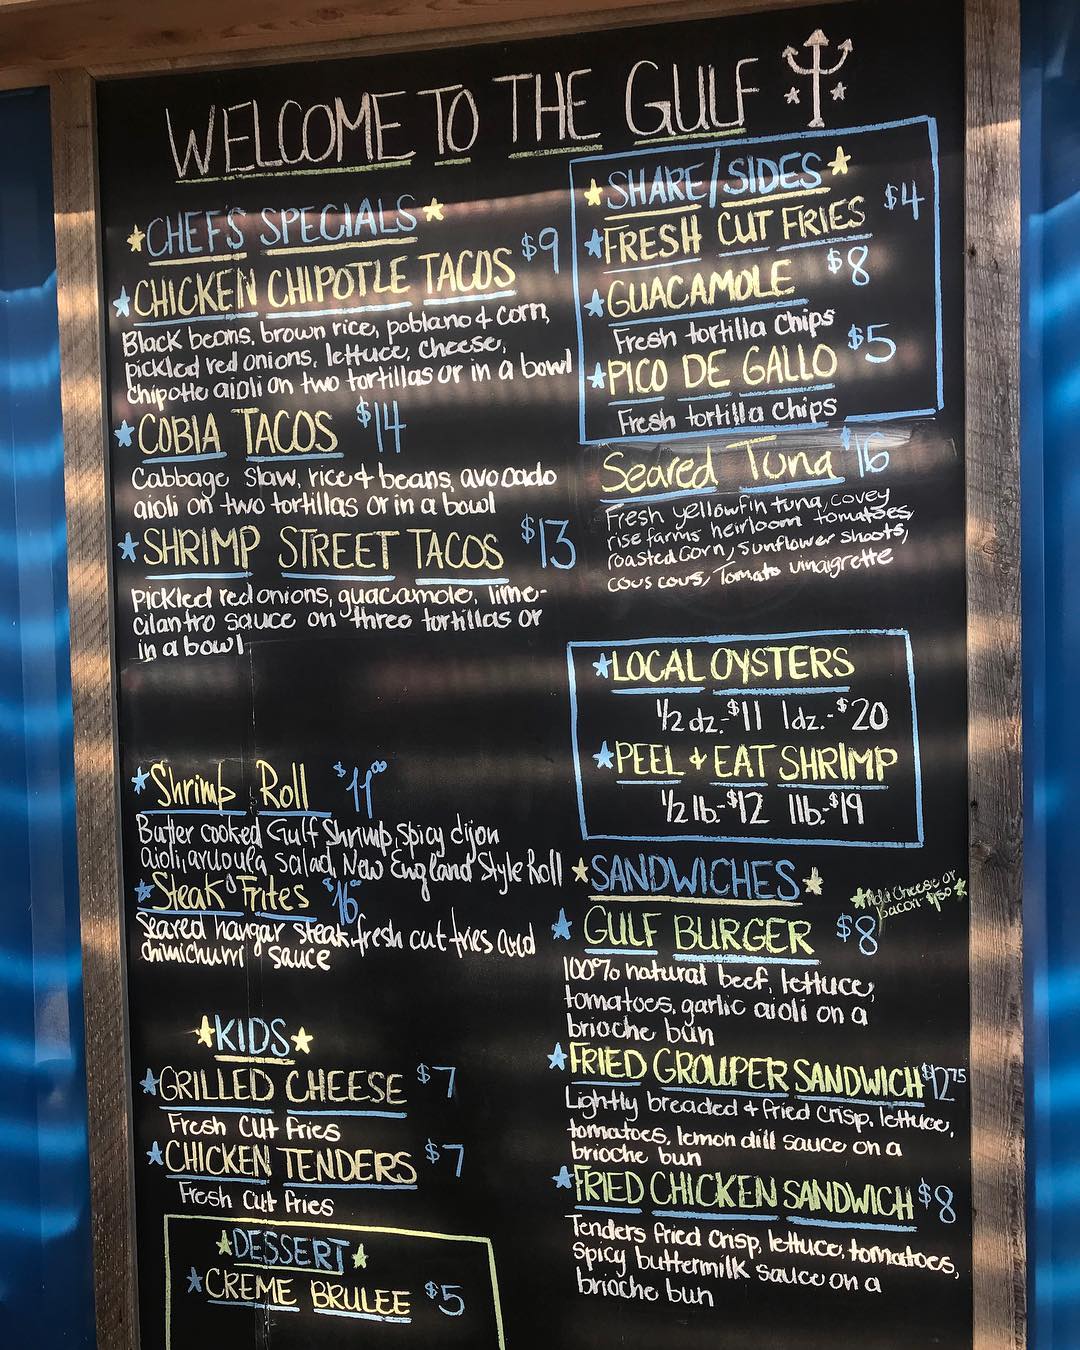 WELCOME TO THE GULF
CHEF'S SPECIALS
CHICKEN CHIPOTLE TACOS $9
Black beans, brown rice, poblano & corn,
pickled red onions, lettuce, cheese,
chipotle aioli on two tortillas or in a bowl
COBIA TACOS $14
Cabbage slaw, rice & beans, avocado
aioli on two tortillas or in a bowl
SHRIMP STREET TACOS $13
pickled red onions, guacamole, lime-
cilantro sauce on three tortillas or
in a bowl
Shrimp Roll $11.00
Butter cooked Gulf Shrimp, Spicy dijon
aioli, arugula salad, New England Style Roll
Steak Frites $16
Seared hangar steak, fresh cut fries and
chimichurri sauce
KIDS
GRILLED CHEESE $7
Fresh Cut Fries
CHICKEN TENDERS $7
Fresh Cut Fries
DESSERT
CREME BRULEE $5
SHARE/SIDES
FRESH CUT FRIES $4
GUACAMOLE $8
Fresh tortilla Chips
PICO DE GALLO $5
Fresh tortilla Chips
Seared Tuna $16
Fresh yellowfin tuna, covey
rise farms heirloom tomatoes,
roasted corn, Sunflower shoots,
cous cous, Tomato vinaigrette
LOCAL OYSTERS
1/2 dz.-$11 1dz.-$20
PEEL & EAT SHRIMP
1/2 lb-$12 1lb-$19
SANDWICHES
Add Cheese or
bacon $1.50
GULF BURGER $8
100% natural beef, lettuce,
tomatoes, garlic aioli on a
brioche bun
FRIED GROUPER SANDWICH $12.75
Lightly breaded & fried crisp, lettuce,
tomatoes, lemon dill sauce on a
brioche bun
FRIED CHICKEN SANDWICH $8
Tenders fried crisp, lettuce, tomatoes,
spicy buttermilk sauce on a
brioche bun